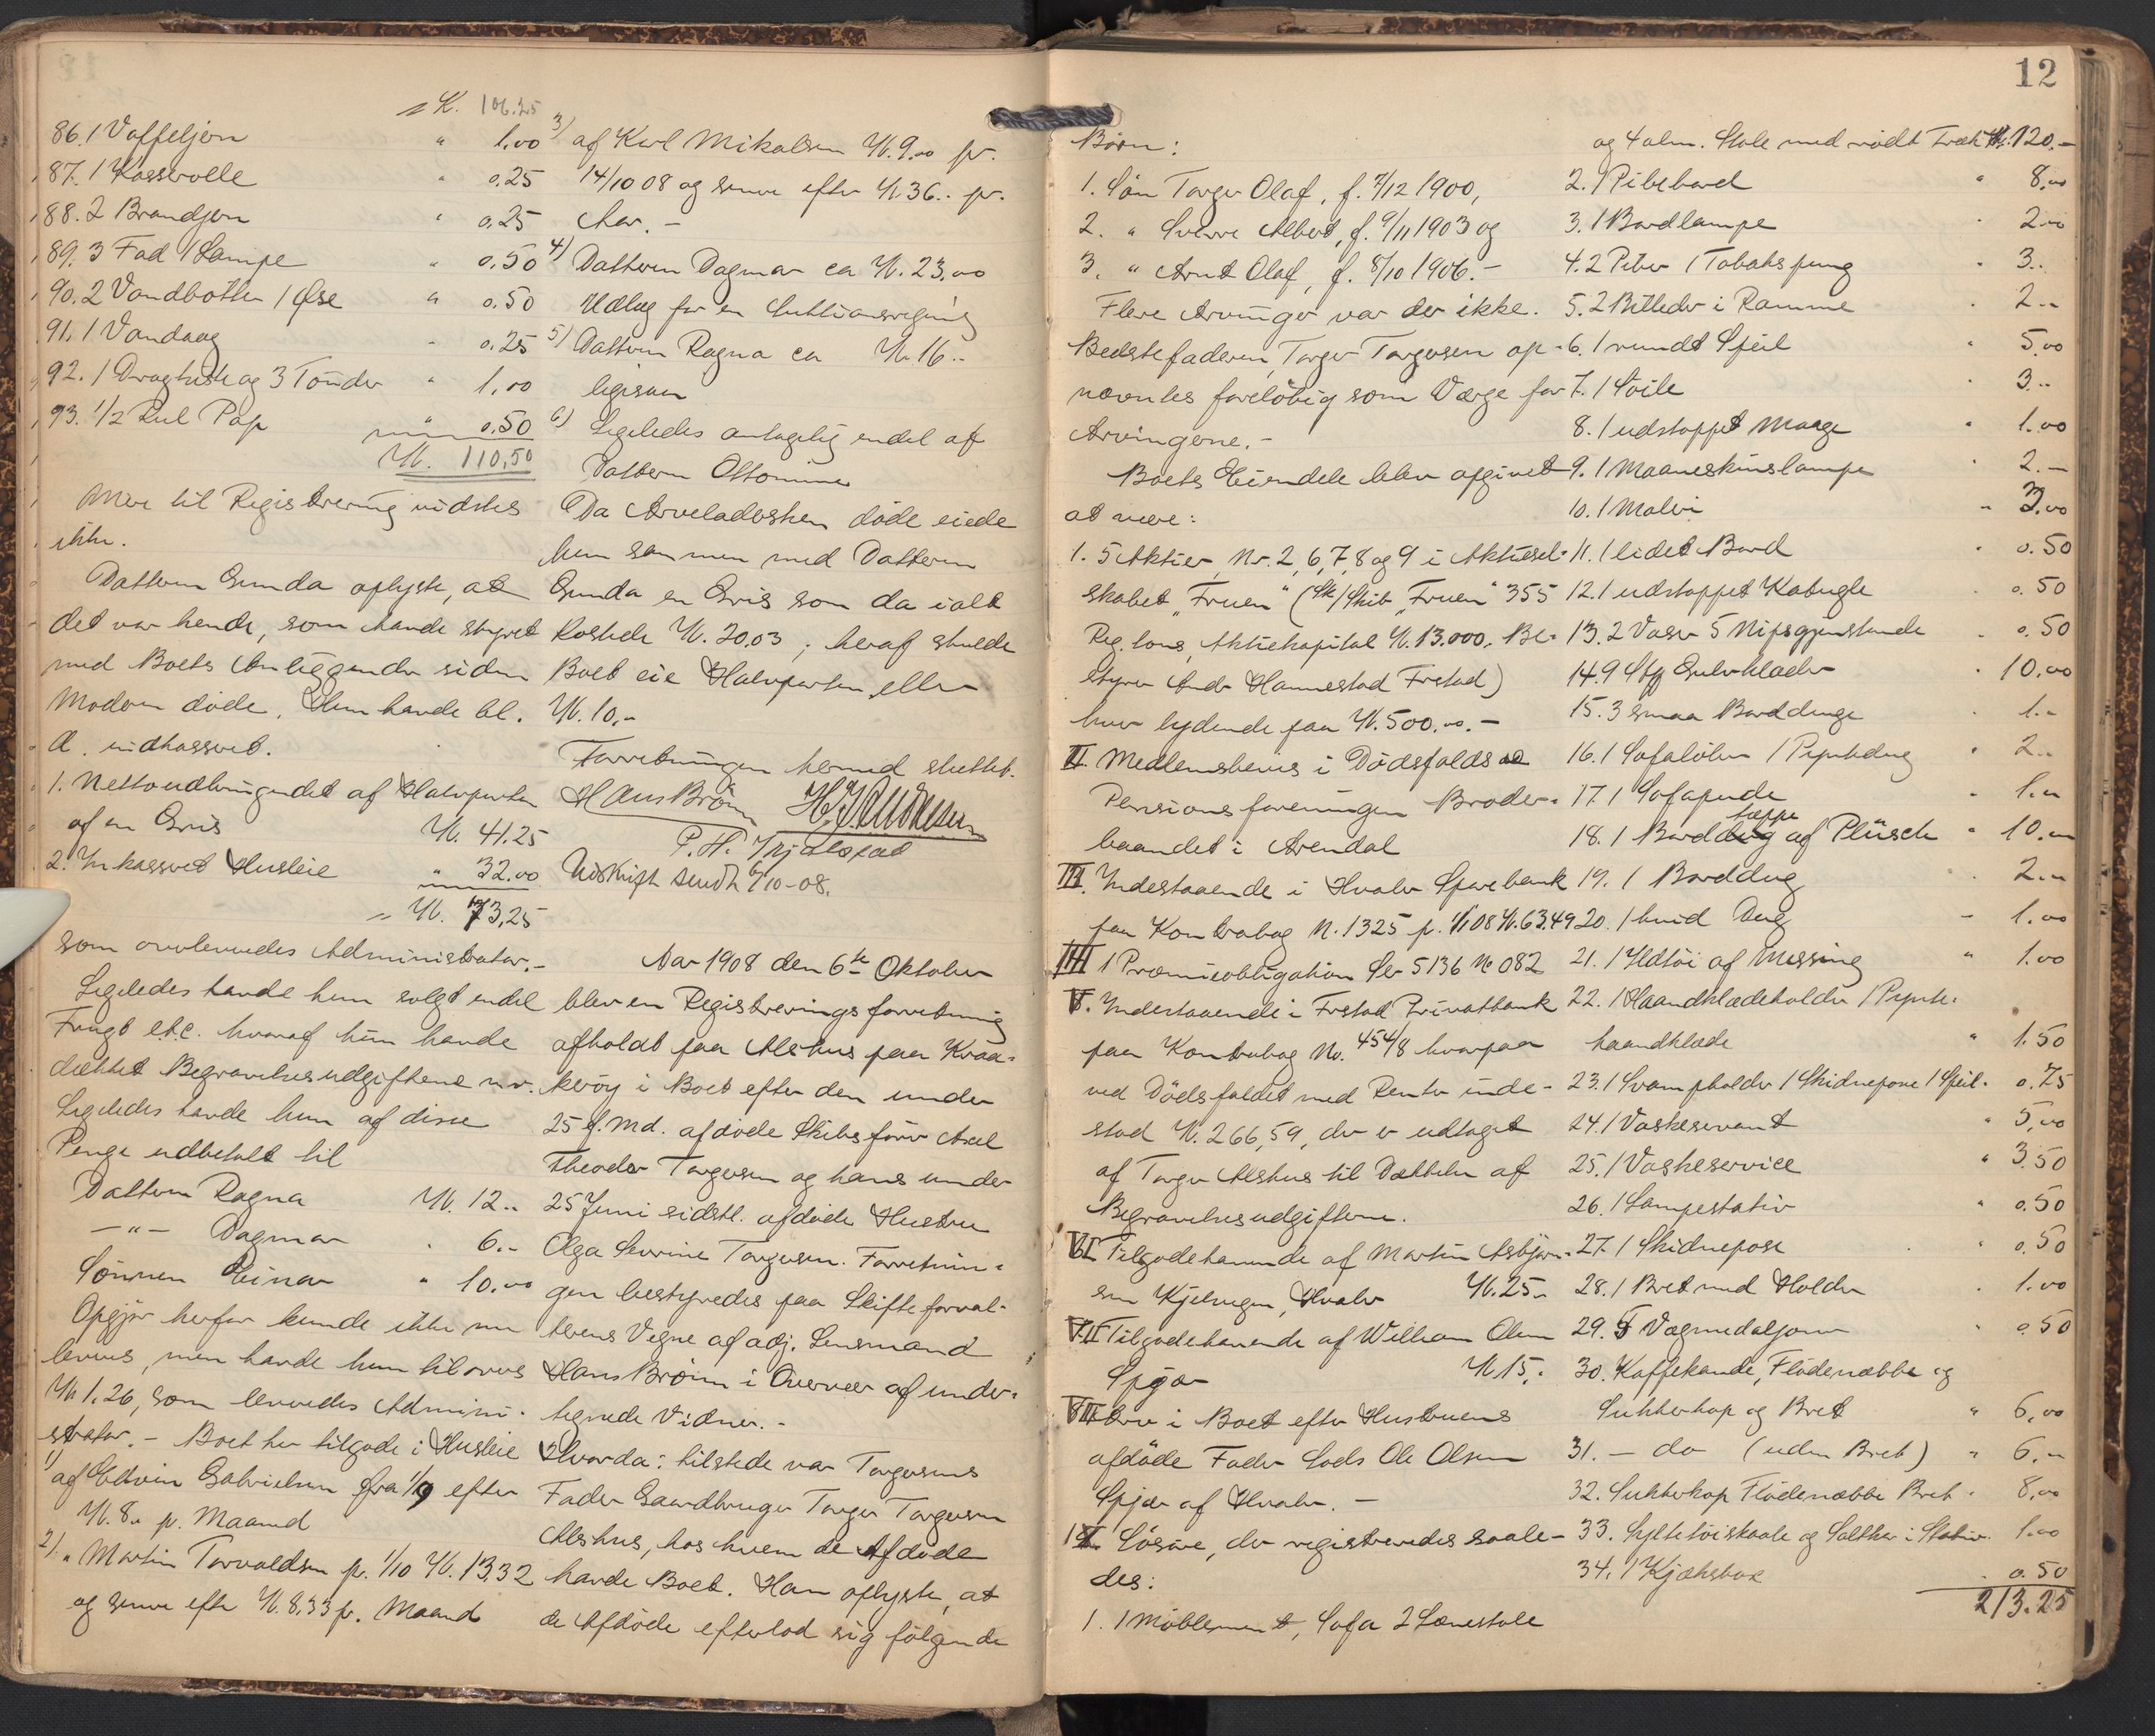 K. 106.25
86. 1 Vaffeljern " 1.00
87. 1 Kasserolle " 0.25
88. 2 Brandjern " 0.25
89. 3 Fad 1 Lampe " 0.50
90. 2 Vandbøtter 1 Øse " 0.50
91. 1 Vandaag " 0.25
92. 1 Dragkiste og 3 Tönder " 1.00
93. 1/2 Rul Pap " 0.50
Kr. 110,50
Mere til Registrering vidstes
ikke.
Datteren Gunda oplyste, at
det var hende, som havde styret
med Boets Anliggender siden
Moderen døde. Hun havde bl.
a. indkasseret.
1. Nettoudbringendet af Halvparten
af en Gris Kr. 41.25
2. Inkasseret Husleie " 32.00
Kr. 73,25
som overleveredes Administrator.-
Ligeledes havde hun solgt endel
Frugt etc. hvoraf hun havde
dækket Begravelsesudgifterne m.v.
Ligeledes havde hun af disse
Penge udbetalt til
Datteren Ragna Kr. 12..
—"— Dagmar " 6.-
Sönnen Einar " 10.00
Opgjør herfor kunde ikke nu
leveres, men havde hun tilovers
Kr. 1.26, som leveredes Admini-
strator. - Boet har tilgode i Husleie
1) af Edvin Gabrielsen fra 1/9 efter
Kr. 8.. pr. Maaned
2) " Martin Torvaldsen pr. 1/10 Kr. 13.32
og senere efter Kr. 8.33 pr. Maaned
3) af Karl Mikalsen Kr. 9.00 pr.
14/10 08 og senere efter Kr. 36.. pr.
Aar. -
4) Datteren Dagmar ca Kr. 23.00
Udlæg for en Auktionsregning
5) Datteren Ragna ca Kr. 16..
ligesaa
6) Ligeledes antagelig endel af
Datteren Ottomine
Da Arveladersken døde eiede
hun sammen med Datteren
Gunda en Gris som da ialt
kostede Kr. 20.03; heraf skulde
Boet eie Halvparten eller
Kr. 10.-
Forretningen hermed sluttet.
Hans Brön H. J. Knudsen
P. H.
Udskrift sendt 6/10-08.
Aar 1908 den 6te Oktober
blev en Registreringsforretning
afholdt paa Alshus paa Kraa-
kerøy i Boet efter den under
25 f. Md. afdøde Skibsfører Axel
Theodor Torgersen og hans under
25 Juni sidstl. afdøde Hustru
Olga Severine Torgersen. Forretnin-
gen bestyredes paa Skifteforval-
terens Vegne af adj. Lensmand
Hans Brönn i Overvær af under-
tegnede Vidner. -
Hvorda: tilstede var Torgersens
Fader Gaardbruger Torger Torgersen
Alshus, hos hvem de Afdøde
havde Boet. Han oplyste, at
de Afdøde efterlod sig følgende
12
Børn:
1. Søn Torger Olaf, f. 7/12 1900,
2. " Sverre Albert, f. 9/11 1903 og
3. " Arnt Olaf, f. 8/10 1906. -
Flere Arvinger var der ikke.
Bedstefaderen Torger Torgersen op-
nævntes foreløbig som Værge for
Arvingerne. -
Boets Eiendele blev opgivet
at være:
1. 5 Aktier, Nr. 2, 6, 7, 8 og 9 i Aktiesel-
skabet "Fruen" (Sk/Skib "Fruen" 355
Reg. tons, Aktiekapital Kr. 13.000, Be-
styrer Andr Hannestad Frstad)
hver lydende paa Kr. 500.00. -
II. Medlemsbevis i Dödsfalds og
Pensionsforeningen Broder-
baandet i Arendal
III. Indestaaende i Hvaler Sparebank
paa Kontrabog N. 1325 pr. 1/1 08 Kr. 63.49
1 Præmieobligation Ser 5136 No 082
V. Indestaaende i Frstad Privatbank
paa Kontrabog No. 454/8 hvorpaa
ved Dödsfaldet med Renter inde-
stod Kr. 266,59, der er udtaget
af Torger Alshus til Dækkelse af
Begravelsesudgifterne.
VI. Tilgodehavende af Martin Asbjørn-
sen Kjelvegen, Hvaler Kr. 25..
VII Tilgodehavende af William Olsen
Spjær Kr. 15.-
Arv i Boet efter Hustruens
afdöde Fader Lods Ole Olsen
Spjær af Hvaler. -
Løsøre, der registreredes saale-
des:
1. 1 Møblement, Sofa 2 Lænestole
og 4 alm. Stole med rødt Træk Kr. 120.-
2. 1 Pibebord " 8.00
3. 1 Bordlampe " 2.00
4. 2 Piber 1 Tobakspung " 3..
5. 2 Billeder i Ramme " 2..
6. 1 rundt Speil " 5.00
7. 1 Søile " 3..
8. 1 udstoppet Maage " 1.00
9. 1 Maaneskinslampe " 2.-
10. 1 Maleri " 3.00
11. 1 lidet Bord " 0.50
12. 1 udstoppet Katugle " 0.50
13. 2 Vaser 5 Nipsgjenstande " 0.50
14. 9 Stk Gulvklæder " 10.00
15. 3 smaa Borddenge " 1.-
16. 1 Sofaløber 1 Pyntedug " 2..
17. 1 Sofapude " 1..
18. 1 Bordteppe af Plüsch " 10..
19. 1 Borddug " 2..
20. 1 hvid Dug " 1.00
21. 1 Ildtøi af Messing " 1.00
22. 1 Haandklædeholder 1 Pynte-
haandklæde " 1.50
23. 1 Svampholder 1 Skidnepose 1 Speil " 0.75
24. 1 Vaskeservant " 5,00
25. 1 Vaskeservice " 3.50
26. 1 Lampestativ " 0.50
27. 1 Skidnepose " 0.50
28. 1 Bret med Holder " 1.00
29. 5 Vægmedaljonr " 0.50
30. Kaffekande, Flødenæbbe og
Sukkerkop og Bret " 6,00
31. — do (uden Bret) " 6,..
32. Sukkerkop Flødenæbbe Bret " 8,00
33. Syltetøiskaale og Saltkar i Stativ 1.00
34. 1 Kjæksboxe " 0.50
213.25